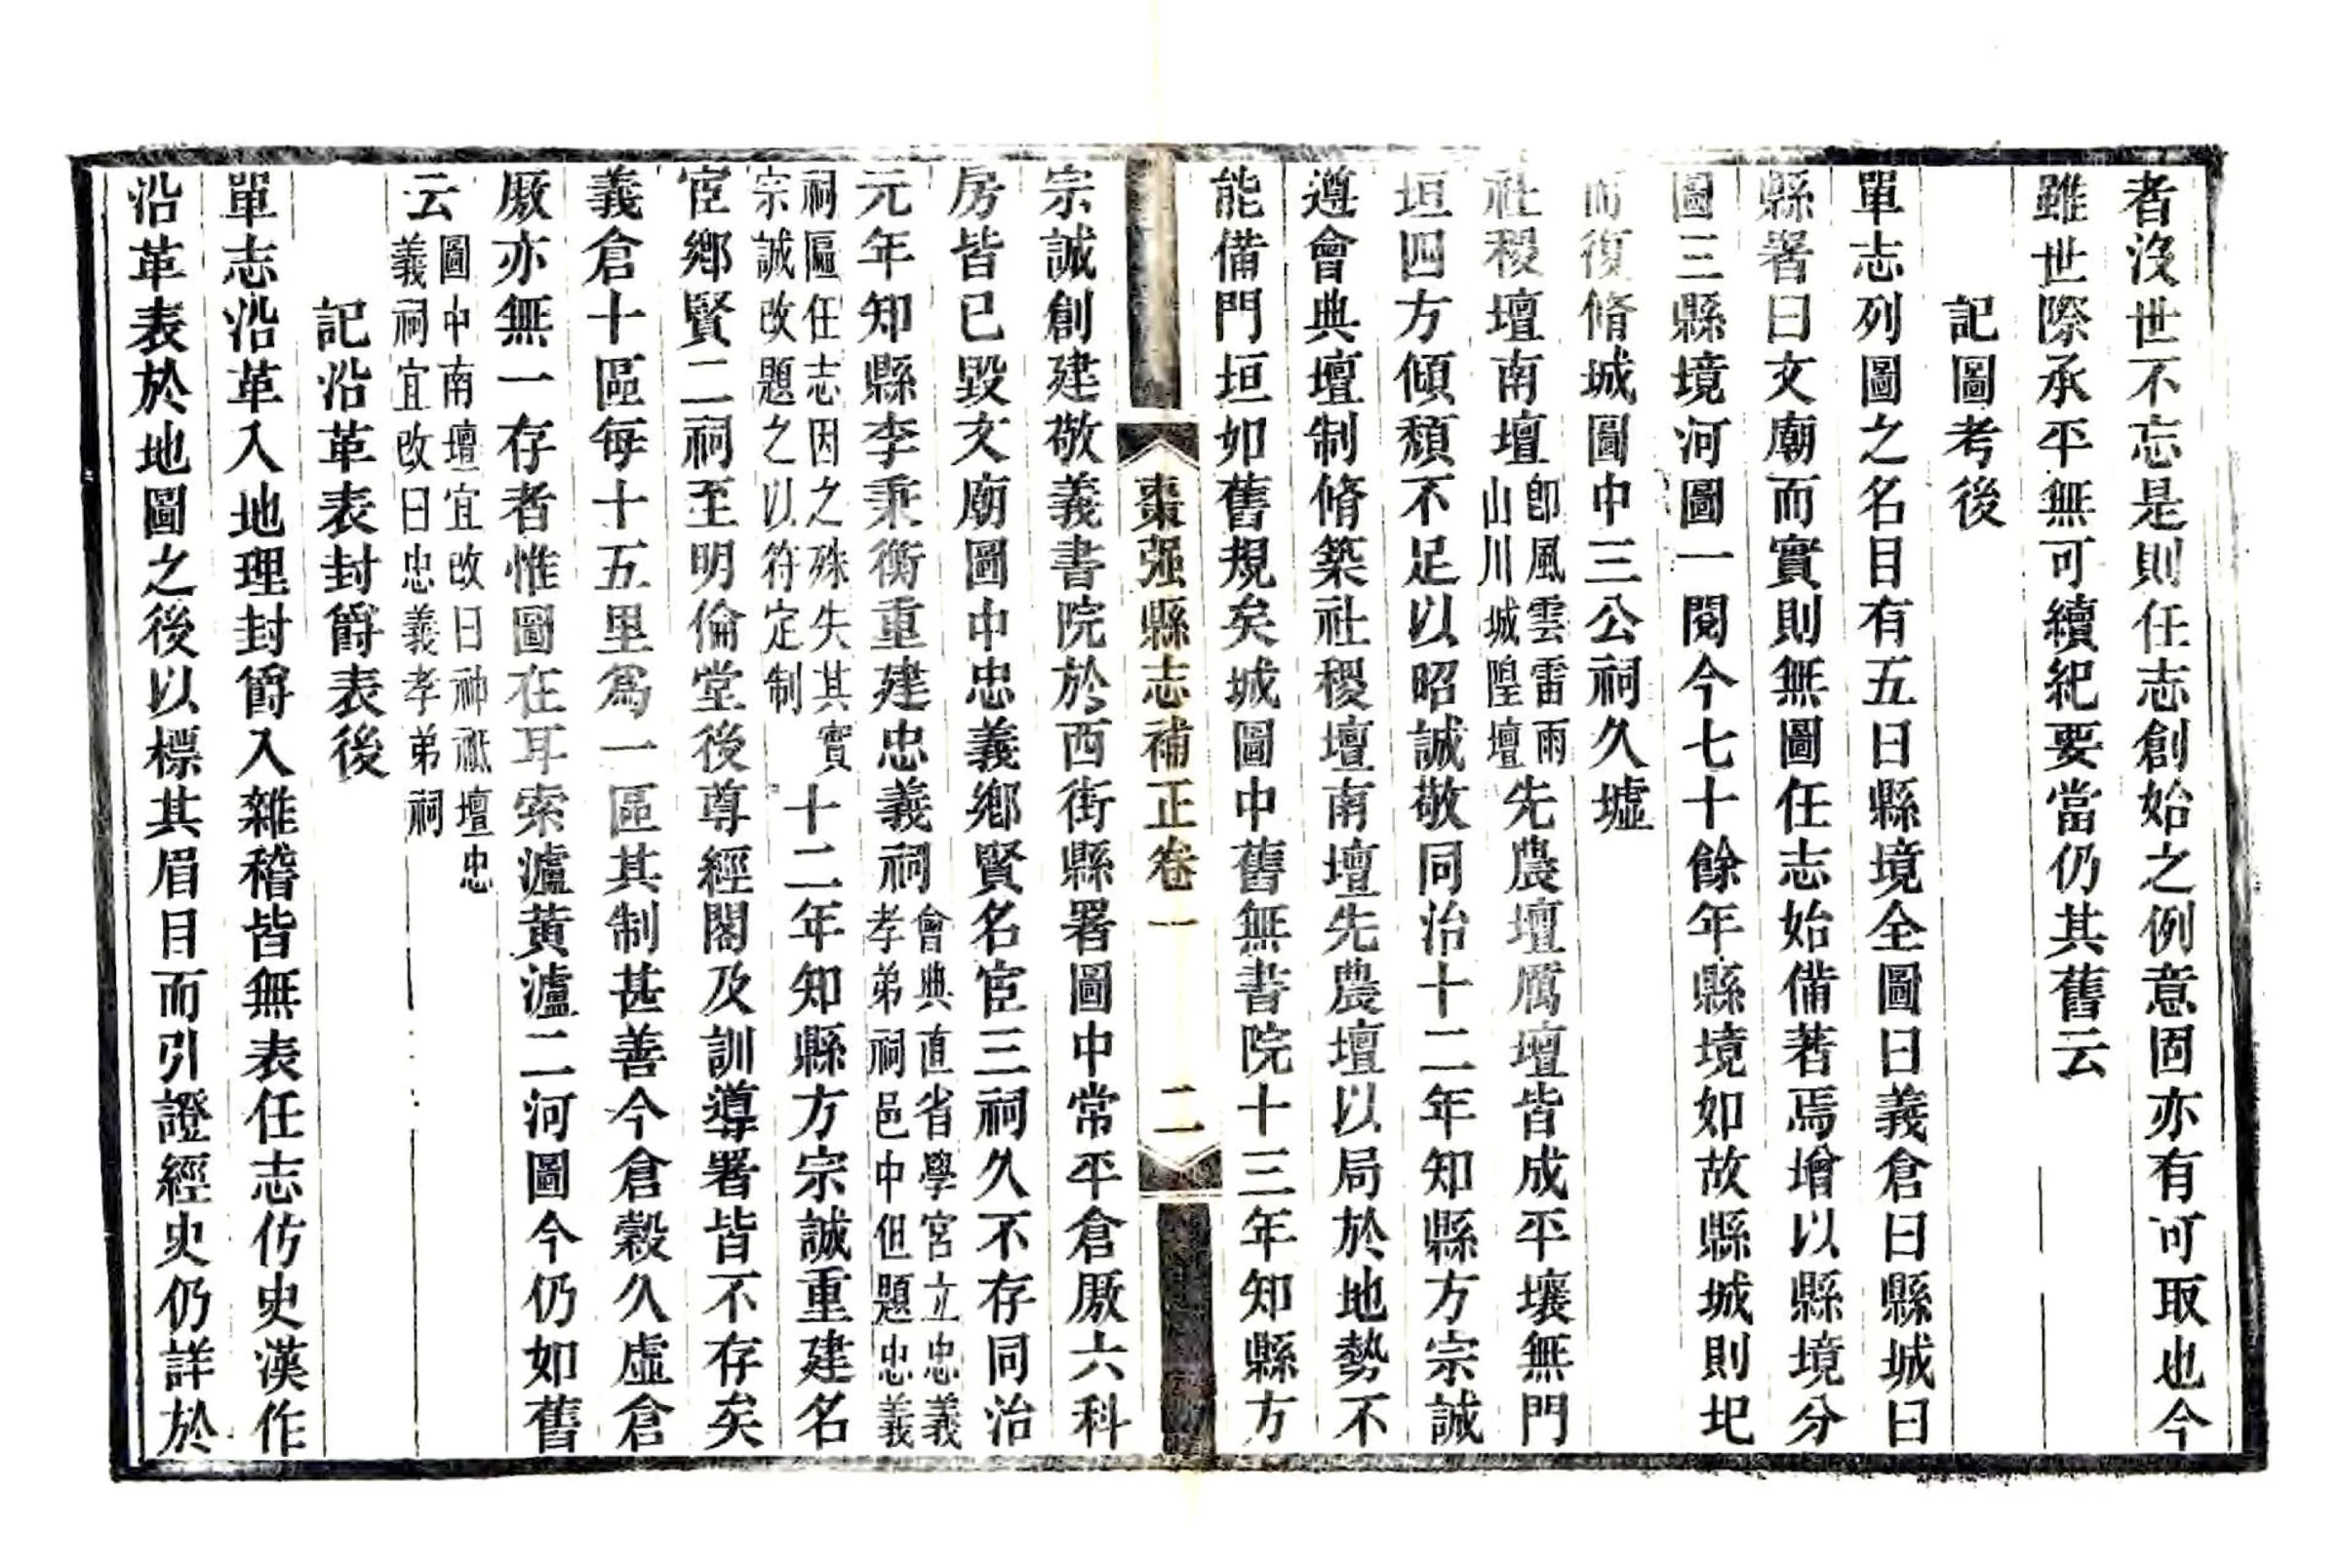 者沒世不忘是則任志創始之例意固亦有可取也今
雖世際承平無可續紀要當仍其舊云
記圖考後
單志列圖之名目有五曰縣境全圖曰義倉曰縣城曰
縣署曰文廟而實則無圖任志始備著焉增以縣境分
圖三縣境河圖一閱今七十餘年縣境如故縣城則圮
而復脩城圖中三公祠久墟
社稷壇南壇
卽風雲雷雨
山川城隍壇
先農壇厲壇皆成平壤無門
垣四方傾頽不足以昭誠敬同治十二年知縣方宗誠
遵會典壇制脩築社稷壇南壇先農壇以局於地勢不
能備門垣如舊規矣城圖中舊無書院十三年知縣方
棗强縣志補正卷一 二
宗誠創建敬義書院於西街縣署圖中常平倉廒六科
房皆已毀文廟圖中忠義鄉賢名宦三祠久不存同治
元年知縣李秉衡重建忠義祠
會典直省學宮立忠義
孝弟祠邑中但題忠義
祠匾任志因之殊失其實
宗誠改題之以符定制
十二年知縣方宗誠重建名
宦鄉賢二祠至明倫堂後尊經閣及訓導署皆不存矣
義倉十區每十五里爲一區其制甚善今倉穀久虛倉
廒亦無一存者惟圖在耳索瀘黃瀘二河圖今仍如舊
云
圖中南壇宜改曰神祗壇忠
義祠宜改曰忠義孝弟祠
記沿革表封爵表後
單志沿革入地理封爵入雜稽皆無表任志仿史漢作
沿革表於地圖之後以標其眉目而引證經史仍詳於